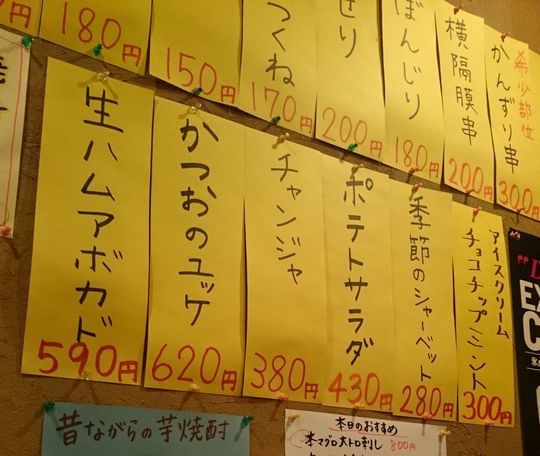 希少部位
かんずり串
300円
横隔膜串
200円
ぼんじり
180円
せり
200円
つくね
170円
150円
180円
アイスクリーム
チョコチップミント
300円
季節のシャーベット
280円
ポテトサラダ
430円
チャンジャ
380円
かつおのユッケ
620円
生ハムアボカド
590円
昔ながらの芋焼酎
本日のおすすめ
本マグロ大トロ刺し 800円